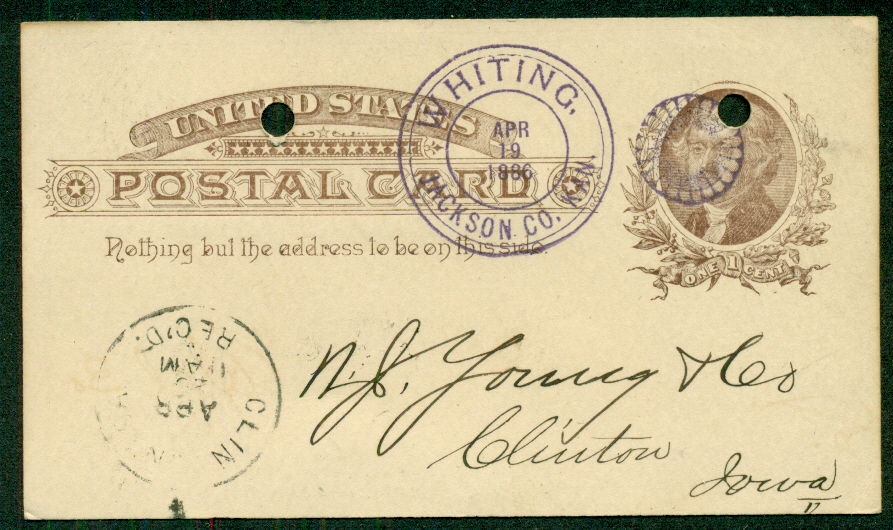 UNITED STATES
POSTAL CARD
Nothing but the address to be on this side.
WHITING,
APR
19
1886
JACKSON CO. KAN.
ONE 1 CENT
CLIN
REC'D.
11 AM
APR
W. J. Young & Co
Clinton
Iowa
17